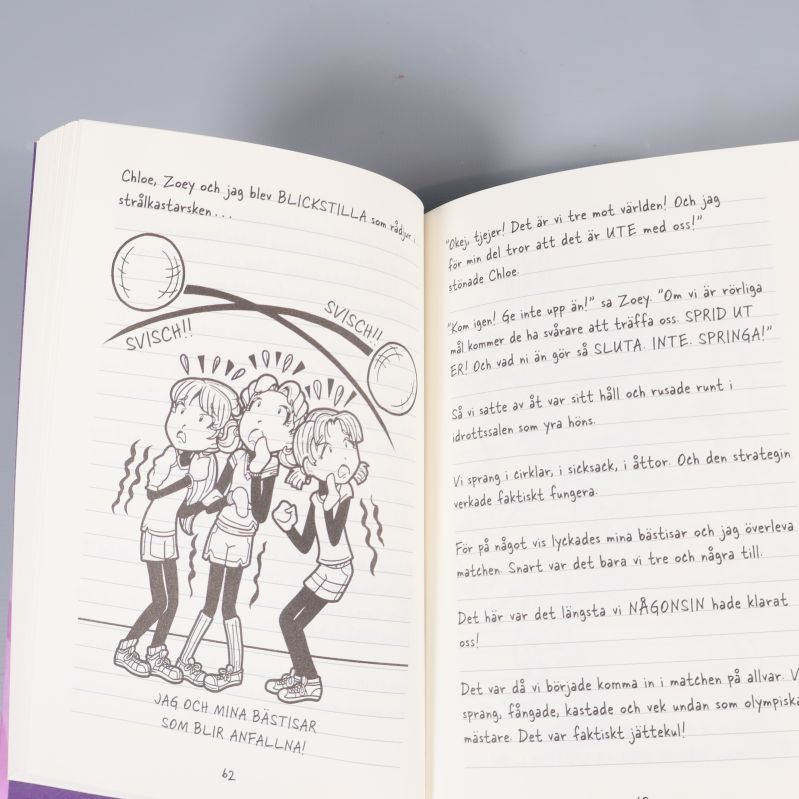 Chloe, Zoey och jag blev BLICKSTILLA som rådjur i
strålkastarsken...
SVISCH!!
SVISCH!!
JAG OCH MINA BÄSTISAR
SOM BLIR ANFALLNA!
62
"Okej, tjejer! Det är vi tre mot världen! Och jag
för min del tror att det är UTE med oss!"
stönade Chloe.
"Kom igen! Ge inte upp än!" sa Zoey. "Om vi är rörliga
mål kommer de ha svårare att träffa oss. SPRID UT
ER! Och vad ni än gör så SLUTA. INTE. SPRINGA!"
Så vi satte av åt var sitt håll och rusade runt i
idrottssalen som yra höns.
Vi sprang i cirklar, i sicksack, i åttor. Och den strategin
verkade faktiskt fungera.
För på något vis lyckades mina bästisar och jag överleva
matchen. Snart var det bara vi tre och några till.
Det här var det längsta vi NÅGONSIN hade klarat
oss!
Det var då vi började komma in i matchen på allvar. V
sprang, fångade, kastade och vek undan som olympiska
mästare. Det var faktiskt jättekul!